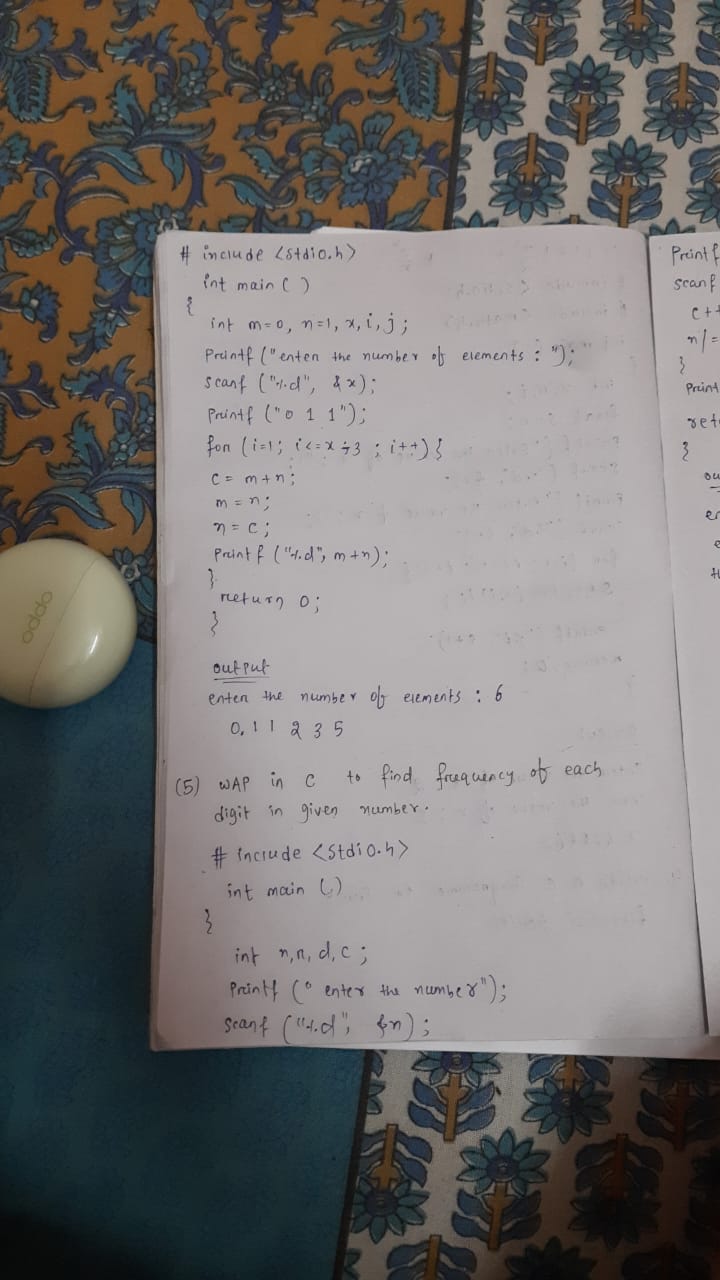 # include <stdio.h>
int main ( )
{
int m=0, n=1, x, i, j ;
Printf ("enter the number of elements : ");
scanf ("%d", &x);
Printf ("0 1 1");
for (i=1; i<=x-3 ; i++) {
c = m+n;
m = n;
n = c;
Printf ("%d", m+n);
}
return 0;
}
output
enter the number of elements : 6
0, 1 1 2 3 5
(5) WAP in C to find frequency of each
digit in given number.
# include <stdio.h>
int main ( )
}
int n, n, d, c ;
Printf (" enter the number");
scanf ("%d", &n) ;
Printf
scanf
c++
n/=
}
Print
retu
}
ou
en
e
th
oppo